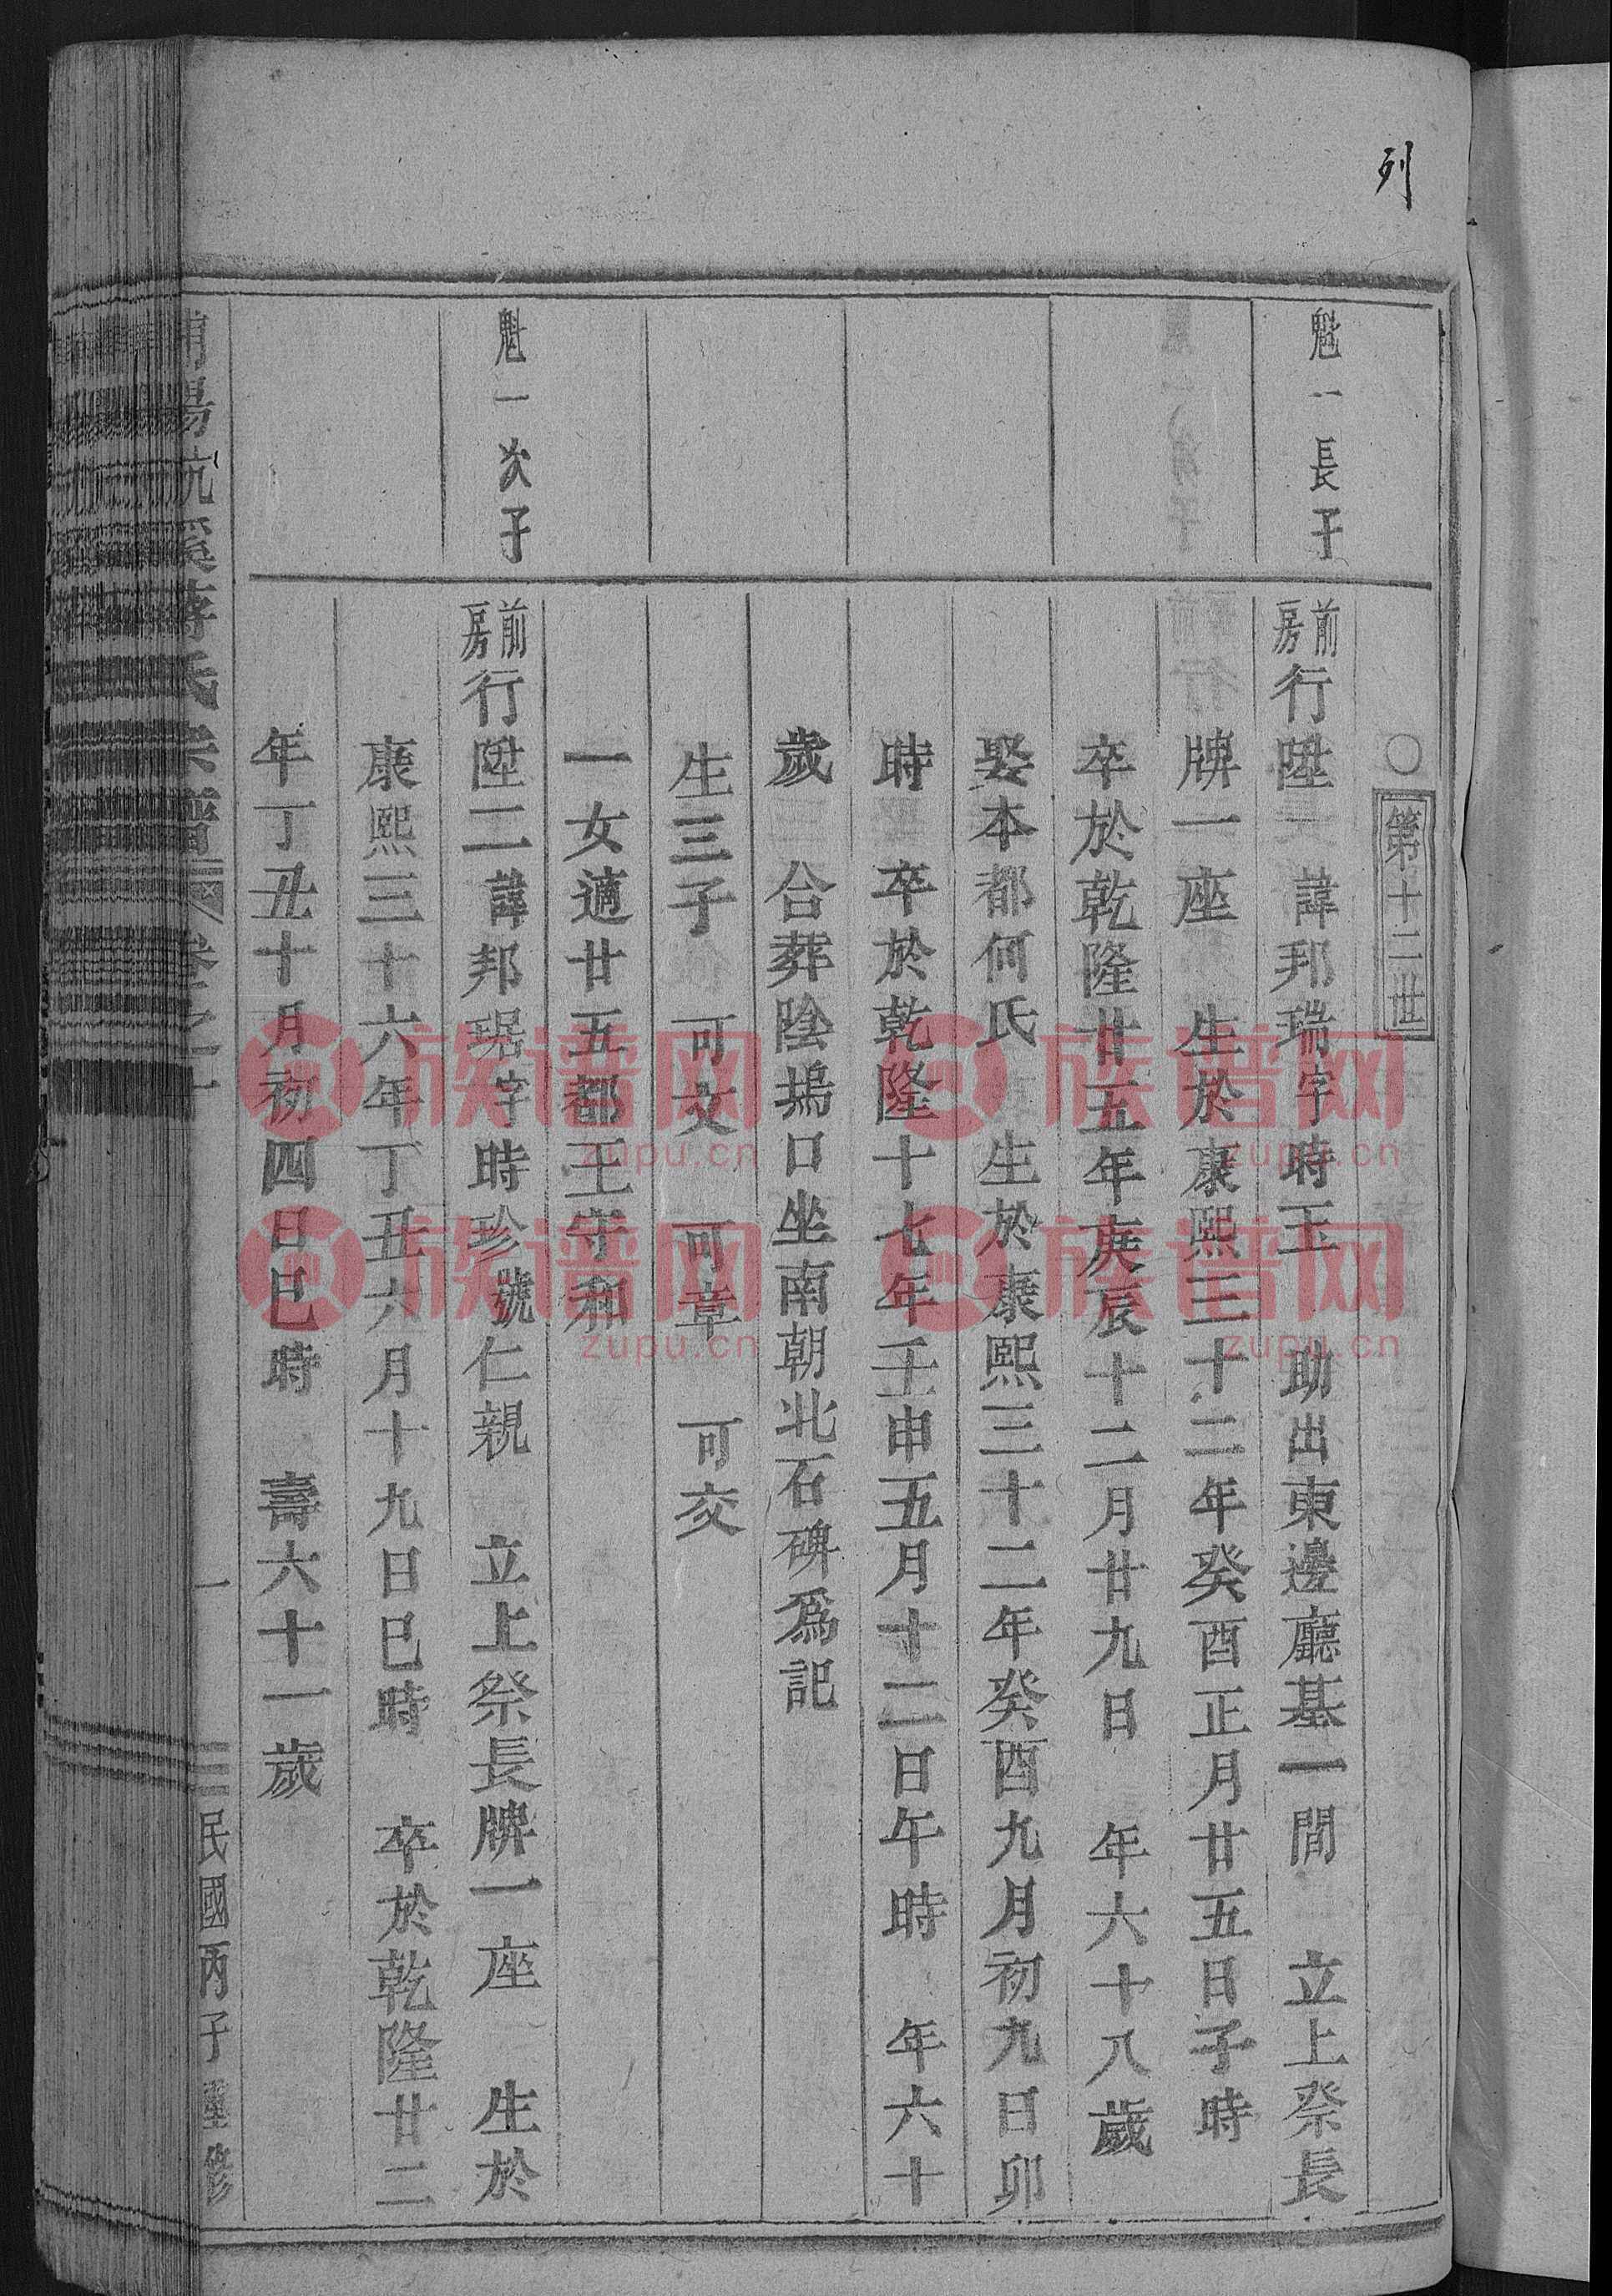 列
○第十二世
魁一長子
前房行陞一諱邦瑞字時玉　助出東邊廳基一間　立上祭長
牌一座　生於康熙三十二年癸酉正月廿五日子時
卒於乾隆廿五年庚辰十二月廿九日　年六十八歲
娶本都何氏　生於康熙三十二年癸酉九月初九日卯
時　卒於乾隆十七年壬申五月十二日午時　年六十
歲　合葬陰塢口坐南朝北石碑為記
生三子　可文　可章　可交
一女適廿五都王守和
魁一次子
前房行陞二諱邦琚字時珍號仁親　立上祭長牌一座　生於
康熙三十六年丁丑六月十九日巳時　卒於乾隆廿二
年丁丑十月初四日巳時　壽六十一歲
浦陽杭溪蔣氏宗譜　卷之十　一　民國丙子重修
族谱网
zupu.cn
族谱网
zupu.cn
族谱网
zupu.cn
族谱网
zupu.cn